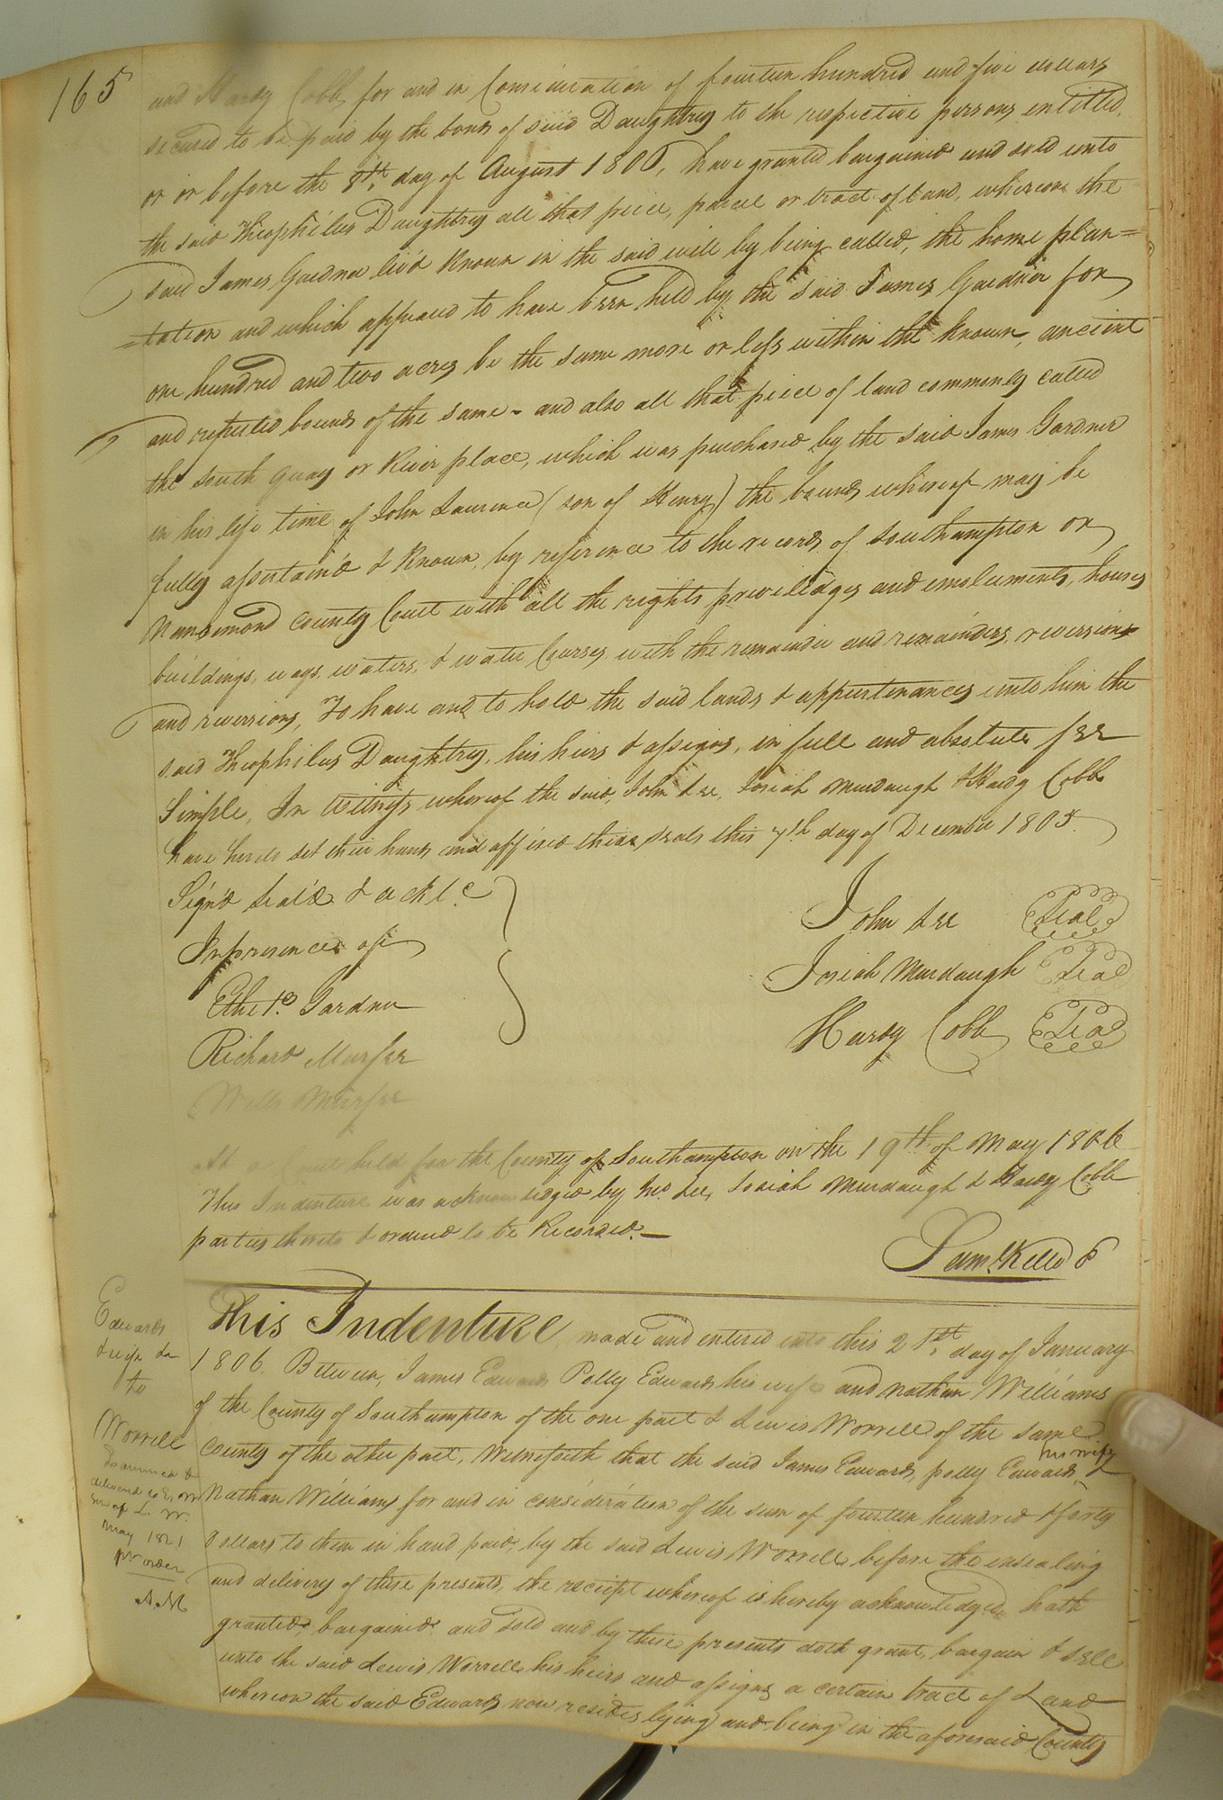 165
and Hardy Cobb, for and in Consideration of fourteen hundred and five dollars
secured to be paid by the bonds of said Daughtrey to the respective persons entitled,
or or before the 8th, day of August 1806, have granted bargained and sold unto
the said Theophilus Daughtrey all that peice, parcel or tract of land, whereon the
said James Gardner liv'd Known in the said will by being called, the home plan=
=tation and which appeared to have been held by the said James Gardner for
one hundred and two acres be the same more or less within the known, ancient
and reputed bounds of the same - and also all that peice of land commonly called
the South quay or River place, which was purchased by the said James Gardner
in his life time of John Laurence (son of Henry) the bounds whereof may be
fully assertain'd & Known, by reference to the records of Southampton or
Nansemond County Court with all the rights priviledges and emoluments, houses
buildings, ways, waters, & water Courses, with the remainder and remainders, reversion
and reversions, To have and to hold the said lands & appurtenances unto him the
said Theophilus Daughtrey, his heirs & assigns, in full and absolute fee
Simple, In Witness whereof the said, John Lee, Josiah Murdaugh & Hardy Cobb
have hereto set their hands and affixed their seals this 7th day of December 1805.
Sign'd Seal'd & ackl.d
In presence of
John Lee Seal
Josiah Murdaugh Seal
Hardy Cobb Seal
Ethe.ld Gardner
Richard Murfee
Wills Murfee
At a court held for the County of Southampton on the 19th of May 1806
This Indenture was acknowledged by Lee, Josiah Murdaugh & Hardy Cobb
parties thereto & ordered to be Recorded. —
Saml. Kello C
Edwards
& wife &a
to
Worrell
Examined &
delivered to
of L. W.
May 1821
pr order
This Indenture made and entered into this 21st, day of January
1806. Between, James Edwards Polly Edwards his wife and Nathan Williams
of the County of Southampton of the one part & Lewis Worrell of the same
County of the other part, Witnesseth that the said James Edwards, polly Edwards, his wife &
Nathan Williams for and in consideration of the sum of fourteen hundred & forty
dollars to them in hand paid, by the said Lewis Worrell, before the ensealing
and delivery of these presents, the receipt whereof is hereby acknowledged, hath
granted, bargained and Sold and by these presents doth grant, bargain & sell
unto the said Lewis Worrell, his heirs and assigns a certain tract of Land
whereon the said Edwards now resides, lying and being in the aforesaid County